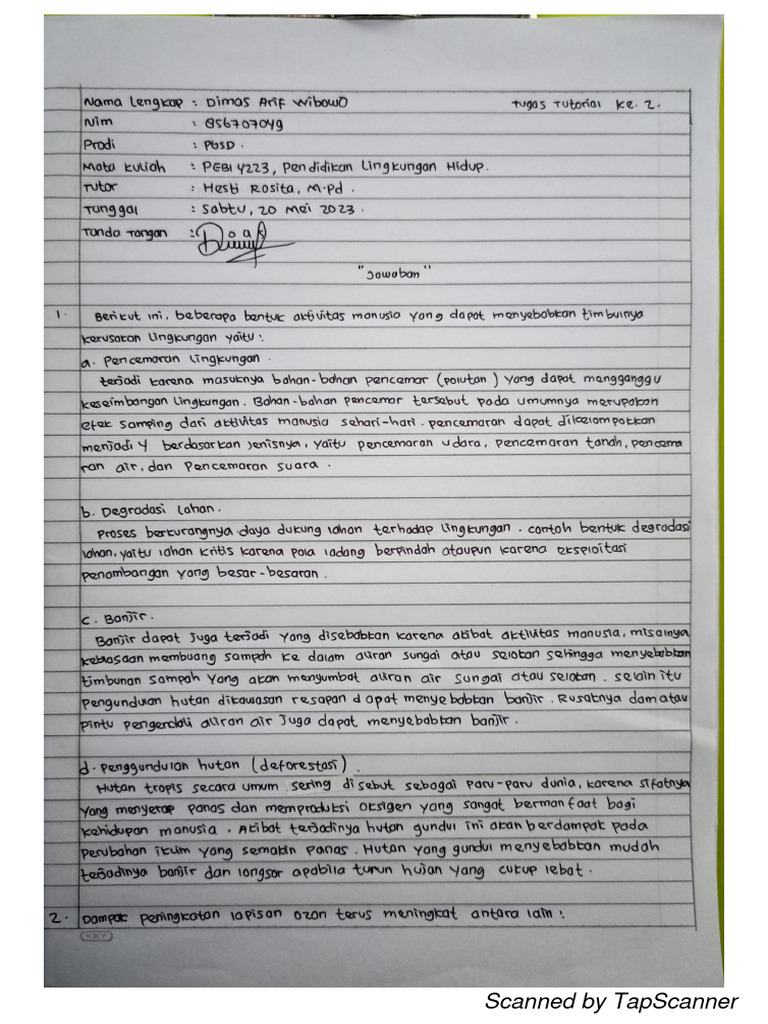 Nama Lengkap : Dimas Arif Wibowo Tugas Tutorial Ke. 2.
Nim : 856707049
Prodi : PGSD.
Mata Kuliah : PEBI 4223, Pendidikan Lingkungan Hidup.
Tutor : Hesti Rosita, M.Pd.
Tanggal : Sabtu, 20 Mei 2023.
Tanda Tangan :
"Jawaban"
1. Berikut ini, beberapa bentuk aktivitas manusia yang dapat menyebabkan timbulnya
kerusakan lingkungan yaitu :
a. Pencemaran Lingkungan.
terjadi karena masuknya bahan-bahan pencemar (polutan) yang dapat mengganggu
keseimbangan lingkungan. Bahan-bahan pencemar tersebut pada umumnya merupakan
efek samping dari aktivitas manusia sehari-hari. pencemaran dapat dikelompokkan
menjadi 4 berdasarkan jenisnya, yaitu pencemaran udara, pencemaran tanah, pencema
ran air, dan Pencemaran suara.
b. Degradasi lahan.
Proses berkurangnya daya dukung lahan terhadap lingkungan. contoh bentuk degradasi
lahan, yaitu lahan kritis karena pola ladang berpindah ataupun karena eksploitasi
penambangan yang besar-besaran.
c. Banjir.
Banjir dapat juga terjadi yang disebabkan karena akibat aktivitas manusia, misalnya
kebiasaan membuang sampah ke dalam aliran sungai atau selokan sehingga menyebabkan
timbunan sampah yang akan menyumbat aliran air sungai atau selokan. selain itu
pengundulan hutan dikawasan resapan dapat menyebabkan banjir. Rusaknya dam atau
pintu pengendali aliran air juga dapat menyebabkan banjir.
d. penggundulan hutan (deforestasi).
Hutan tropis secara umum sering disebut sebagai paru-paru dunia, karena sifatnya
yang menyerap panas dan memproduksi oksigen yang sangat bermanfaat bagi
kehidupan manusia. Akibat terjadinya hutan gundul ini akan berdampak pada
perubahan iklim yang semakin panas. Hutan yang gundul menyebabkan mudah
terjadinya banjir dan longsor apabila turun hujan yang cukup lebat.
2. Dampak peningkatan lapisan ozon terus meningkat antara lain :
KKY
Scanned by TapScanner